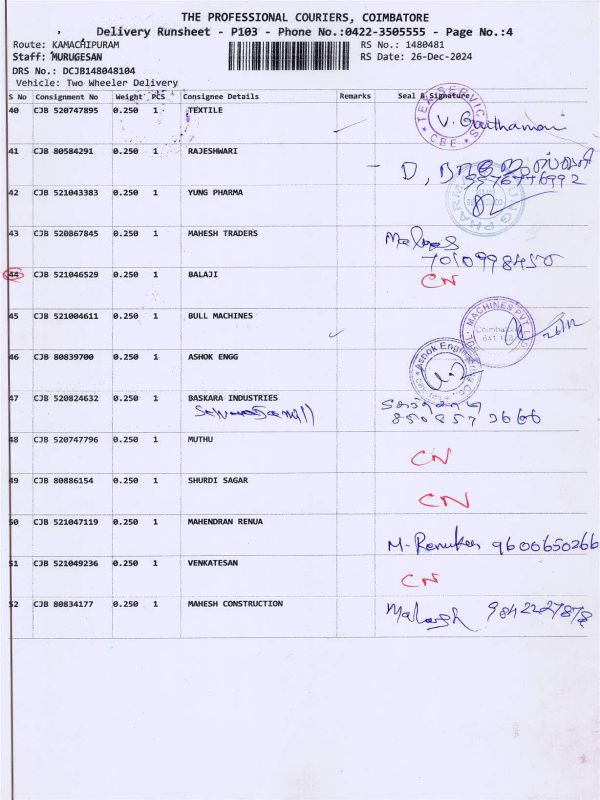 THE PROFESSIONAL COURIERS, COIMBATORE
Delivery Runsheet - P103 - Phone No.:0422-3505555 - Page No.:4
Route: KAMACHIPURAM RS No.: 1480481
Staff: MURUGESAN RS Date: 26-Dec-2024
DRS No.: DCJB148048104
Vehicle: Two Wheeler Delivery
S No Consignment No Weight PCS Consignee Details Remarks Seal & Signature
40 CJB 520747895 0.250 1 TEXTILE
TEX SERVICES CBE
V. Gouthaman
41 CJB 80584291 0.250 1 RAJESHWARI
42 CJB 521043383 0.250 1 YUNG PHARMA
43 CJB 520867845 0.250 1 MAHESH TRADERS
7010998450
44 CJB 521046529 0.250 1 BALAJI CN
45 CJB 521004611 0.250 1 BULL MACHINES
MACHINES PVT LTD Coimbatore
26/12
46 CJB 80839700 0.250 1 ASHOK ENGG
Ashok Engineering Co.
47 CJB 520824632 0.250 1 BASKARA INDUSTRIES
48 CJB 520747796 0.250 1 MUTHU CN
49 CJB 80886154 0.250 1 SHURDI SAGAR CN
50 CJB 521047119 0.250 1 MAHENDRAN RENUA
M. Renuka 9600650266
51 CJB 521049236 0.250 1 VENKATESAN CN
52 CJB 80834177 0.250 1 MAHESH CONSTRUCTION
Mahesh 9842227878